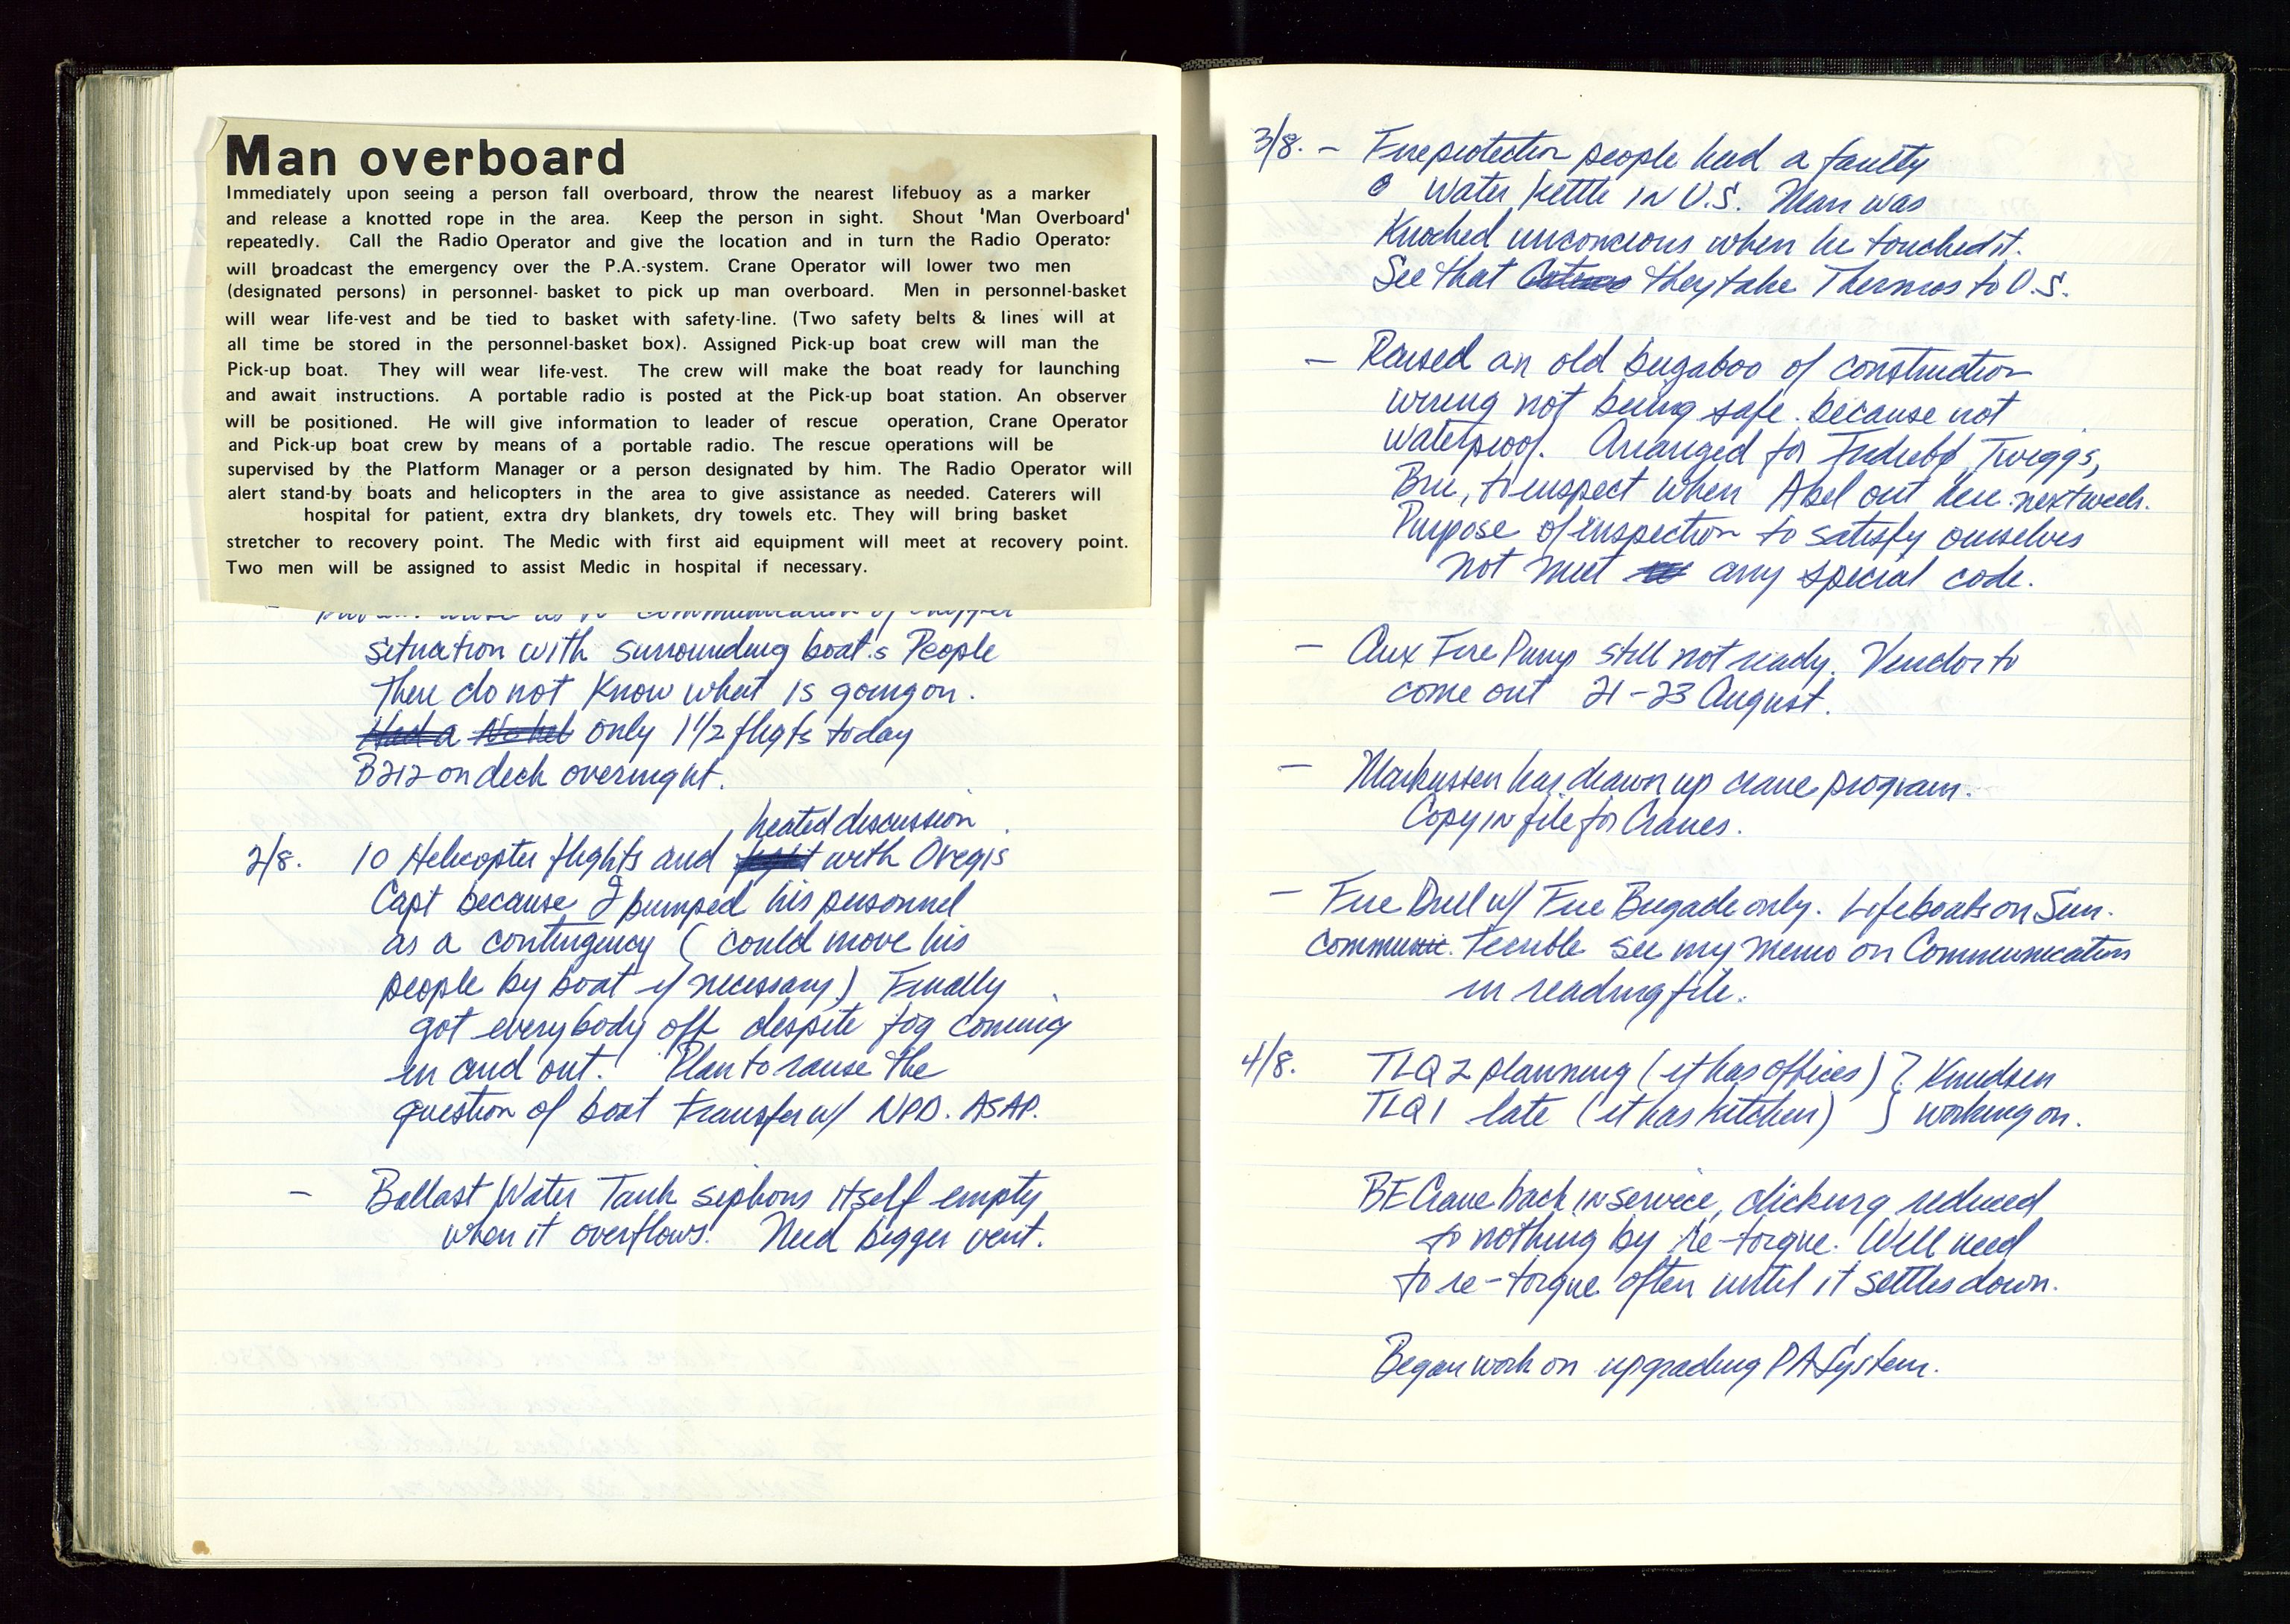 Man overboard
Immediately upon seeing a person fall overboard, throw the nearest lifebuoy as a marker
and release a knotted rope in the area. Keep the person in sight. Shout 'Man Overboard'
repeatedly. Call the Radio Operator and give the location and in turn the Radio Operator
will broadcast the emergency over the P.A.-system. Crane Operator will lower two men
(designated persons) in personnel- basket to pick up man overboard. Men in personnel-basket
will wear life-vest and be tied to basket with safety-line. (Two safety belts & lines will at
all time be stored in the personnel-basket box). Assigned Pick-up boat crew will man the
Pick-up boat. They will wear life-vest. The crew will make the boat ready for launching
and await instructions. A portable radio is posted at the Pick-up boat station. An observer
will be positioned. He will give information to leader of rescue operation, Crane Operator
and Pick-up boat crew by means of a portable radio. The rescue operations will be
supervised by the Platform Manager or a person designated by him. The Radio Operator will
alert stand-by boats and helicopters in the area to give assistance as needed. Caterers will
hospital for patient, extra dry blankets, dry towels etc. They will bring basket
stretcher to recovery point. The Medic with first aid equipment will meet at recovery point.
Two men will be assigned to assist Medic in hospital if necessary.
communication of chopper
situation with surrounding boat.s People
there do not know what is going on.
Had a only 1 1/2 fligts today
B212 on deck overnight.
heated discussion
2/8. 10 Helicopter flights and with Dregis
Capt because I bumped his personnel
as a contingency (could move his
people by boat if necessary) Finally
got everybody off despite fog coming
in and out. Plan to raise the
question of boat transfer w/ NPD. ASAP.
- Ballast Water Tank siphons itself empty
when it overflows! Need bigger vent.
3/8. - Fire protection people had a faulty
Water Kettle in U.S. Man was
Knocked unconcious when he touched it.
See that they take Thermos to U.S.
- Raised an old bugaboo of construction
wiring not being safe because not
waterproof. Arranged for Indrebø, Twiggs,
Bru, to inspect when Abel out here next week.
Purpose of inspection to satisfy ourselves
not meet any special code.
- Aux Fire Pump still not ready. Vendor to
come out 21-23 August.
- Markussen has drawn up crane program.
Copy in file for Cranes.
- Fire Drill w/ Fire Brigade only. Lifeboats on Sun.
communic. Terrible see my memo on Communication
in reading file.
4/8. TLQ 2 planning (it has offices) } Knudsen
TLQ 1 late (it has kitchen) } working on.
BE Crane back in service, clicking reduced
to nothing by re-torque. Will need
to re-torque often until it settles down.
Began work on upgrading PA System.